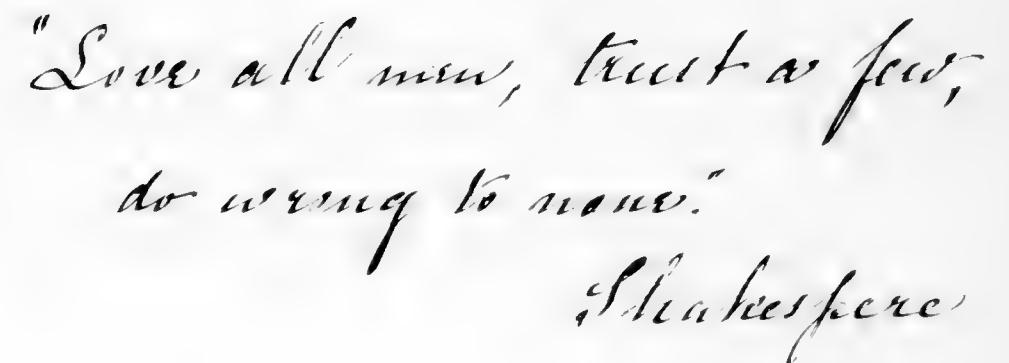 "Love all men, trust a few,
do wrong to none."
Shakespere